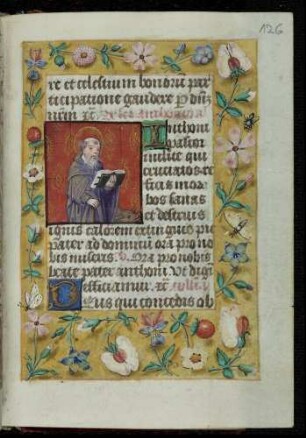 126
re et celestium bonoru par
ticipatione gaudere P dn̄m
nr̄m ⁊c̄ De sco Anthonio a
Anthoni
pastor
inclite qui
cruciatos re
ficis mor
bos sanas
et destruis
ignis calorem extinguis pie
pater ad dominum ora pro no
bis miseris. v̄. Ora pro nobis
beate pater anthoni. Ut digni
efficiamur ⁊c̄ collec
Deus qui concedis ob